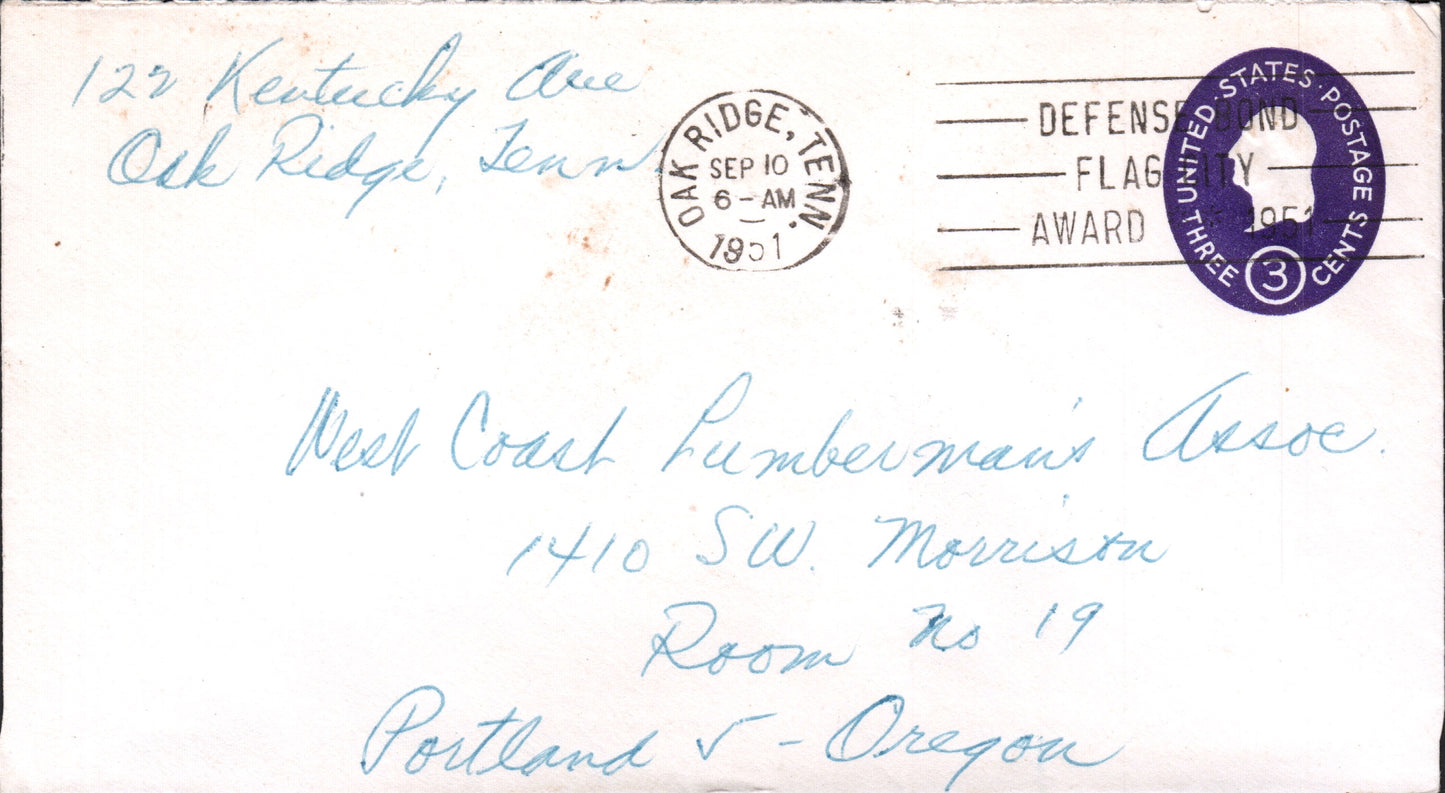 122 Kentucky Ave
Oak Ridge, Tenn.
OAK RIDGE, TENN.
SEP 10
6 - AM
1951
DEFENSE BOND
FLAG CITY
AWARD 1951
UNITED · STATES · POSTAGE
THREE 3 CENTS
West Coast Lumberman's Assoc.
1410 SW. Morrison
Room No 19
Portland 5 - Oregon